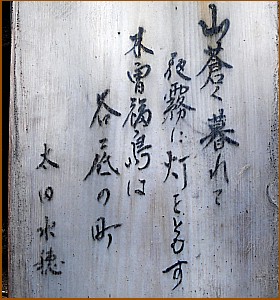 山蒼く暮れて
夜霧に灯をともす
木曽福島は
谷底の町
太田水穂